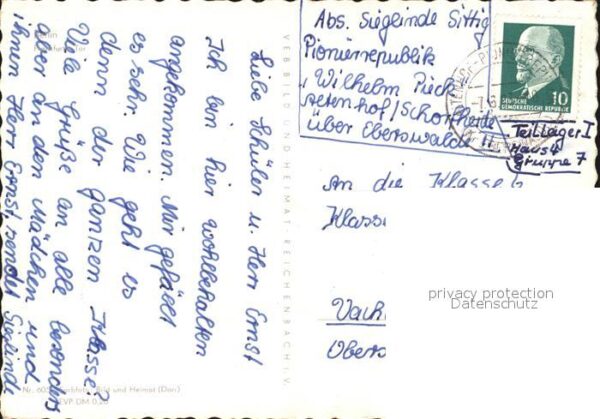 Abs. Sieglinde Sittig
Pionierrepublik
"Wilhelm Pieck
seenhof/Schorfheide
über Eberswalde
Teillager I
Haus 4
Gruppe 7
DEUTSCHE
DEMOKRATISCHE REPUBLIK 10
Liebe Schüler u. Herr Ernst
Ich bin hier wohlbehalten
angekommen. Mir gefällt
es sehr. Wie geht es
denn der ganzen Klasse?
Viele Grüße an alle besonders
aber an den Mädchen und
ihnen Herr Ernst sendet Sieglinde
VEB BILD UND HEIMAT REICHENBACH I. V.
An die Klasse 6
Klass
Vach
Obers
privacy protection
Datenschutz
Bild und Heimat (Darr)
EVP DM 0,20